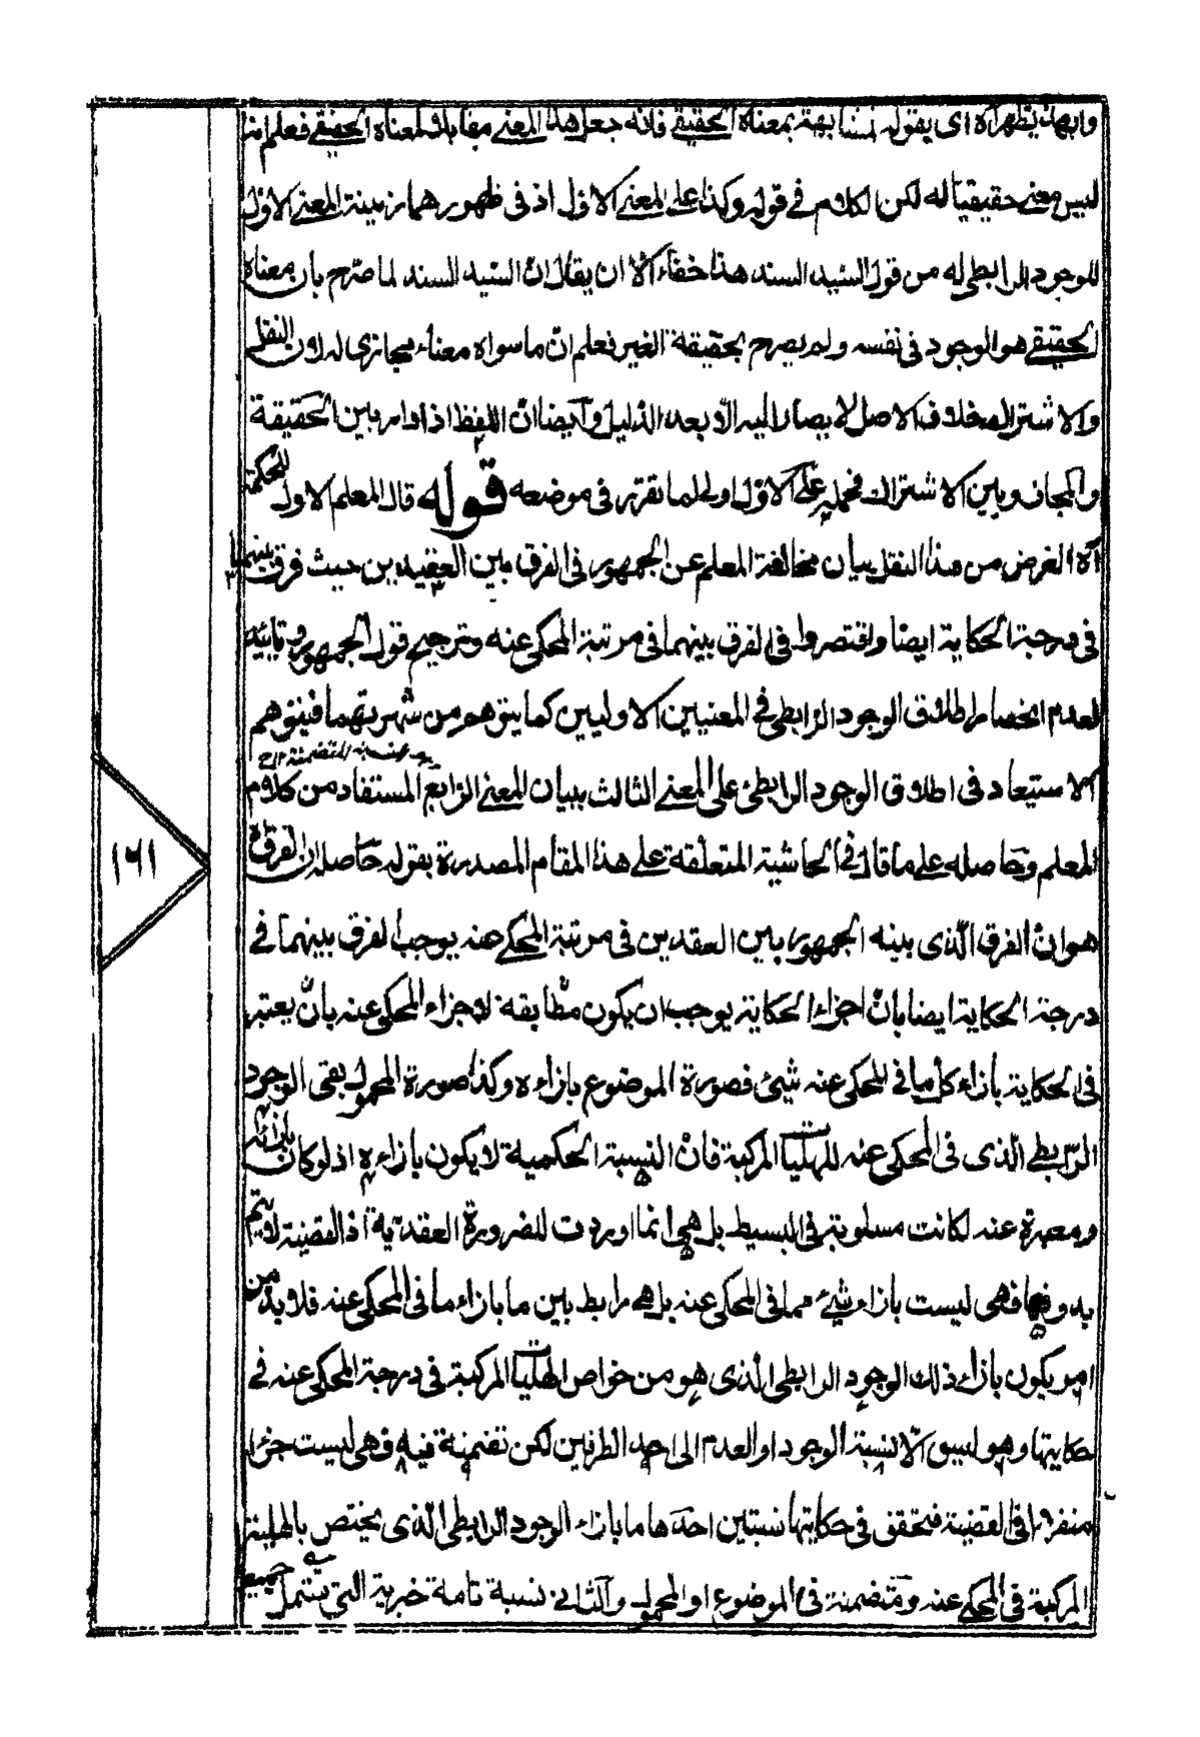 وابهذا يظهر آه اى بقوله لمشابهته بمعناه الحقيقى فانه جعل هذا المعنى مقابلا لمعناه الحقيقى فعلم انه
ليس معنى حقيقيا له لكن الكلام فى قوله وكذا على المعنى الاول اذ فى ظهور هما زبينة المعنى الاول
للموجود الرابطى له من قول السيد السند هذا خفاء الا ان يقال ان السيد السند لما صرح بان معناه
الحقيقى هو الوجود فى نفسه ولم يصرح بحقيقة الغير فعلم ان ما سواه معناه مجازى له لان النقل
والاشتراك خلاف الاصل لا يصار اليه الا بعد الدليل وايضا ان اللفظ اذا دار بين الحقيقة
والمجاز وبين الاشتراك فحمله على الاول اولى لما تقرر فى موضعه قوله قال المعلم الاول للحكمة
آه الغرض من هذا النقل بيان مخالفة المعلم عن الجمهور فى الفرق بين العقدين حيث فرق بينهما
فى درجة الحكاية ايضا واقتصروا فى الفرق بينهما فى مرتبة المحكى عنه وترجيح قول الجمهور وتاييد
لعدم انحصار اطلاق الوجود الرابطى فى المعنيين الاوليين كما يتوهم من شهرتهما فيتوهم
الاستبعاد فى اطلاق الوجود الرابطى على المعنى الثالث ببيان المعنى الرابع المستفاد من كلام
المعلم وحاصله على ما قال فى الحاشية المتعلقة على هذا المقام المصدرة بقوله حاصله ان الفرق
هو ان الفرق الذى بينه الجمهور بين العقدين فى مرتبة المحكى عنه يوجب الفرق بينهما فى
درجة الحكاية ايضا بان اجزاء الحكاية يوجب ان يكون مطابقة لاجزاء المحكى عنه بان يعتبر
فى الحكاية بازاء كل ما فى المحكى عنه شئ فصورة الموضوع بازاءه وكذا صورة المحمول بقى الوجود
الرابطى الذى فى المحكى عنه للهليات المركبة فان النسبة الحكمية لا يكون بازاءه اذ لو كان بازائه
ومعبرة عنه لكانت مسلوبة فى البسيط بل هى انما اوردت للضرورة العقدية اذ القضية لا يتم
بدونها فهى ليست بازاء شئ مما فى المحكى عنه بل هى رابط بين ما بازاء ما فى المحكى عنه فلا بد من
امر يكون بازاء ذلك الوجود الرابطى الذى هو من خواص الهليات المركبة فى درجة المحكى عنه فى
حكايتها وهو ليس الا نسبة الوجود او العدم الى احد الطرفين لكن تضمنية فيه فهى ليست جزءا
منفردا فى القضية فتحقق فى حكايتها نسبتين احدها ما بازاء الوجود الرابطى الذى يختص بالهلية
المركبة فى المحكى عنه ومتضمنة فى الموضوع او المحمول والثانى نسبة تامة خبرية التى يشتمل جميع
١٦١